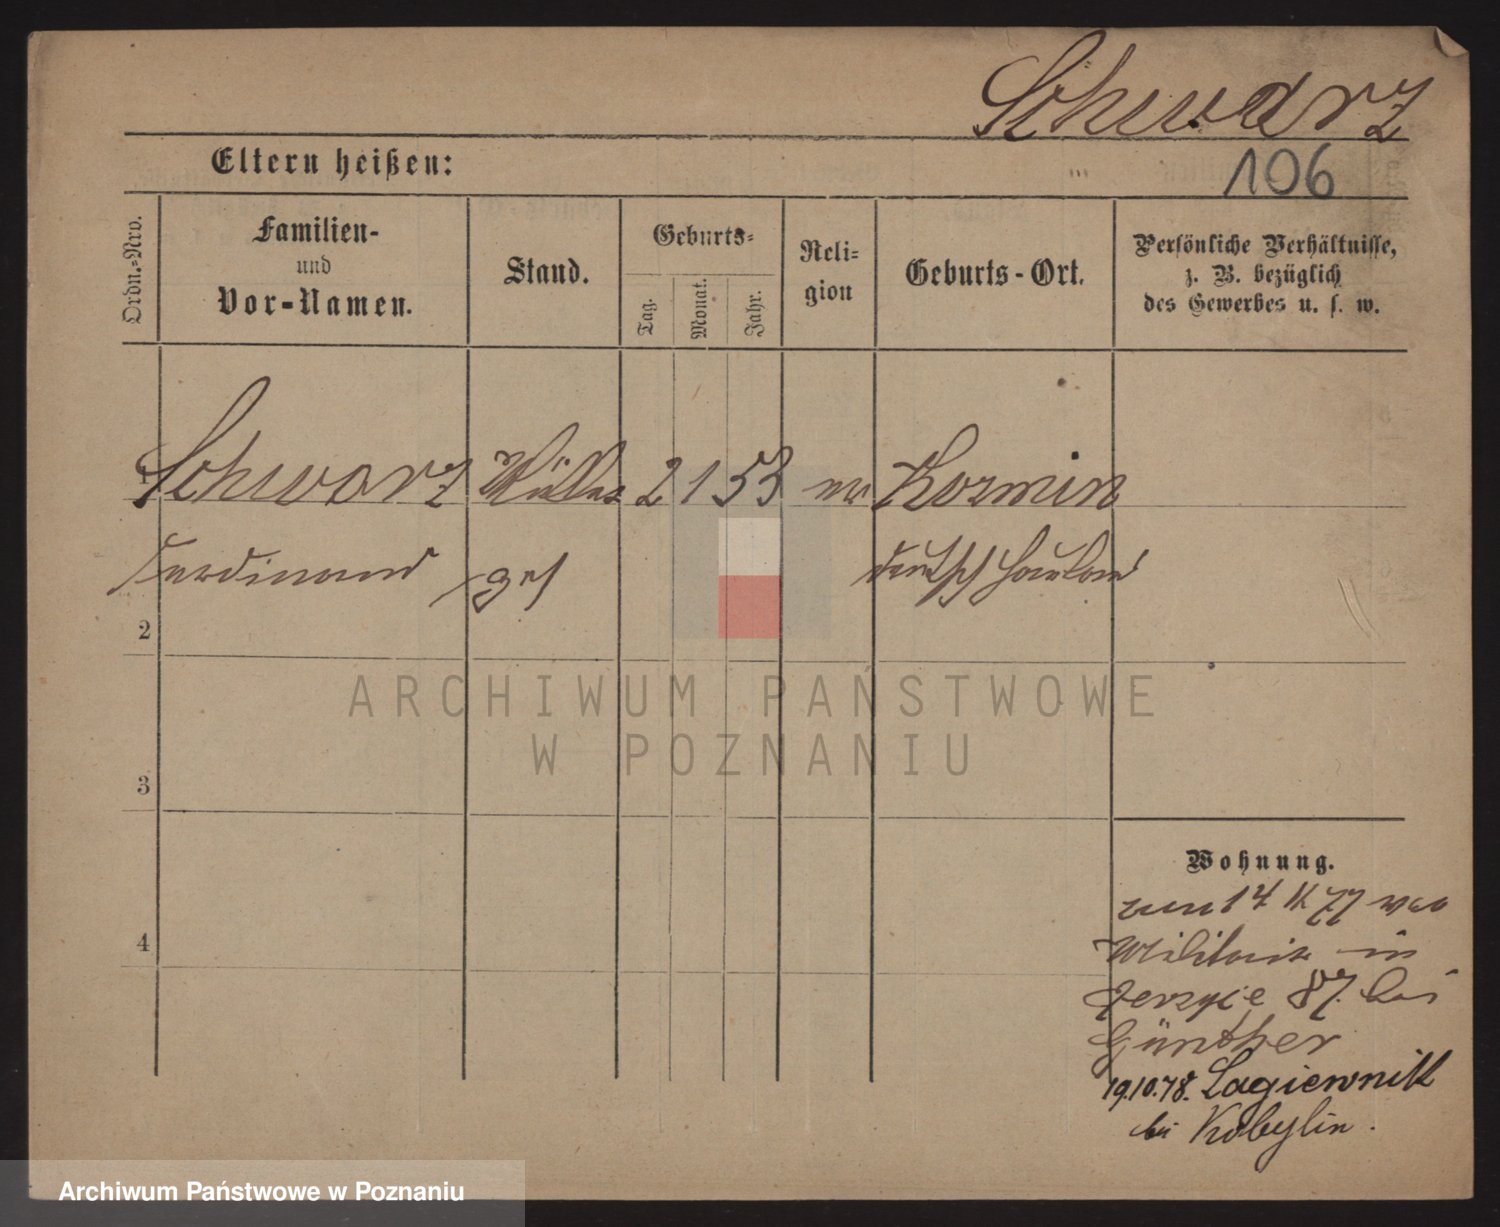 Schwarz
106
Eltern heißen:
Ordn.-Nro.
Familien-
und
Vor-Namen.
Stand.
Geburts-
Tag.
Monat.
Jahr.
Reli-
gion
Geburts-Ort.
Persönliche Verhältnisse,
z. B. bezüglich
des Gewerbes u. s. w.
1
Schwarz Müller 2 1 53 ev Kozmin
Ferdinand ges deutsch Hauland
2
ARCHIWUM PAŃSTWOWE
W POZNANIU
3
Wohnung.
14 77 vom
4
Militair in
Jerzyce 87. bei
Günther
19.10.78. Lagiewnik
bei Kobylin.
Archiwum Państwowe w Poznaniu